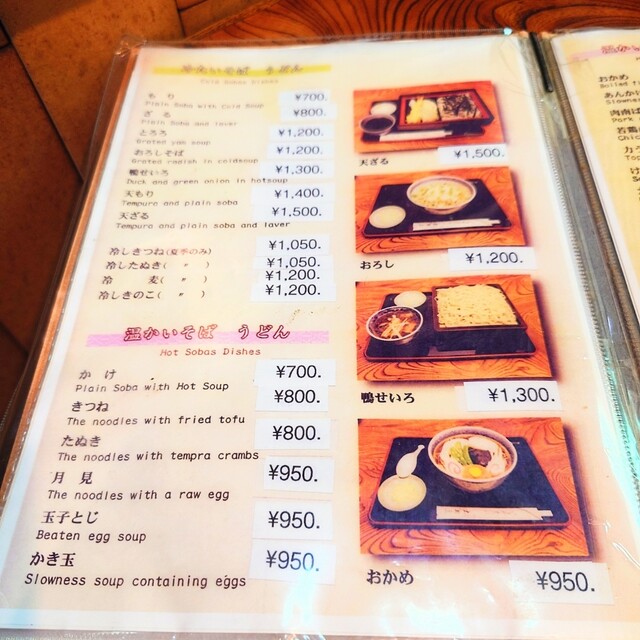 冷たいそば うどん
Cold Sobas Dishes
もり ¥700.
Plain Soba with Cold Soup
ざる ¥800.
Plain Soba and laver
とろろ ¥1,200.
Grated yam soup
おろしそば ¥1,200.
Grated radish in coldsoup
鴨せいろ ¥1,300.
Duck and green onion in hotsoup
天もり ¥1,400.
Tempura and plain soba
天ざる ¥1,500.
Tempura and plain soba and laver
冷しきつね(夏季のみ) ¥1,050.
冷したぬき( 〃 ) ¥1,050.
冷 麦( 〃 ) ¥1,200.
冷しきのこ( 〃 ) ¥1,200.
温かいそば うどん
Hot Sobas Dishes
かけ ¥700.
Plain Soba with Hot Soup
きつね ¥800.
The noodles with fried tofu
たぬき ¥800.
The noodles with tempra crambs
月見 ¥950.
The noodles with a raw egg
玉子とじ ¥950.
Beaten egg soup
かき玉 ¥950.
Slowness soup containing eggs
天ざる ¥1,500.
おろし ¥1,200.
鴨せいろ ¥1,300.
おかめ ¥950.
温かい
おかめ
あんかけ
Slown
肉南ば
Pork
若鶏
Chic
力う
To
け
S